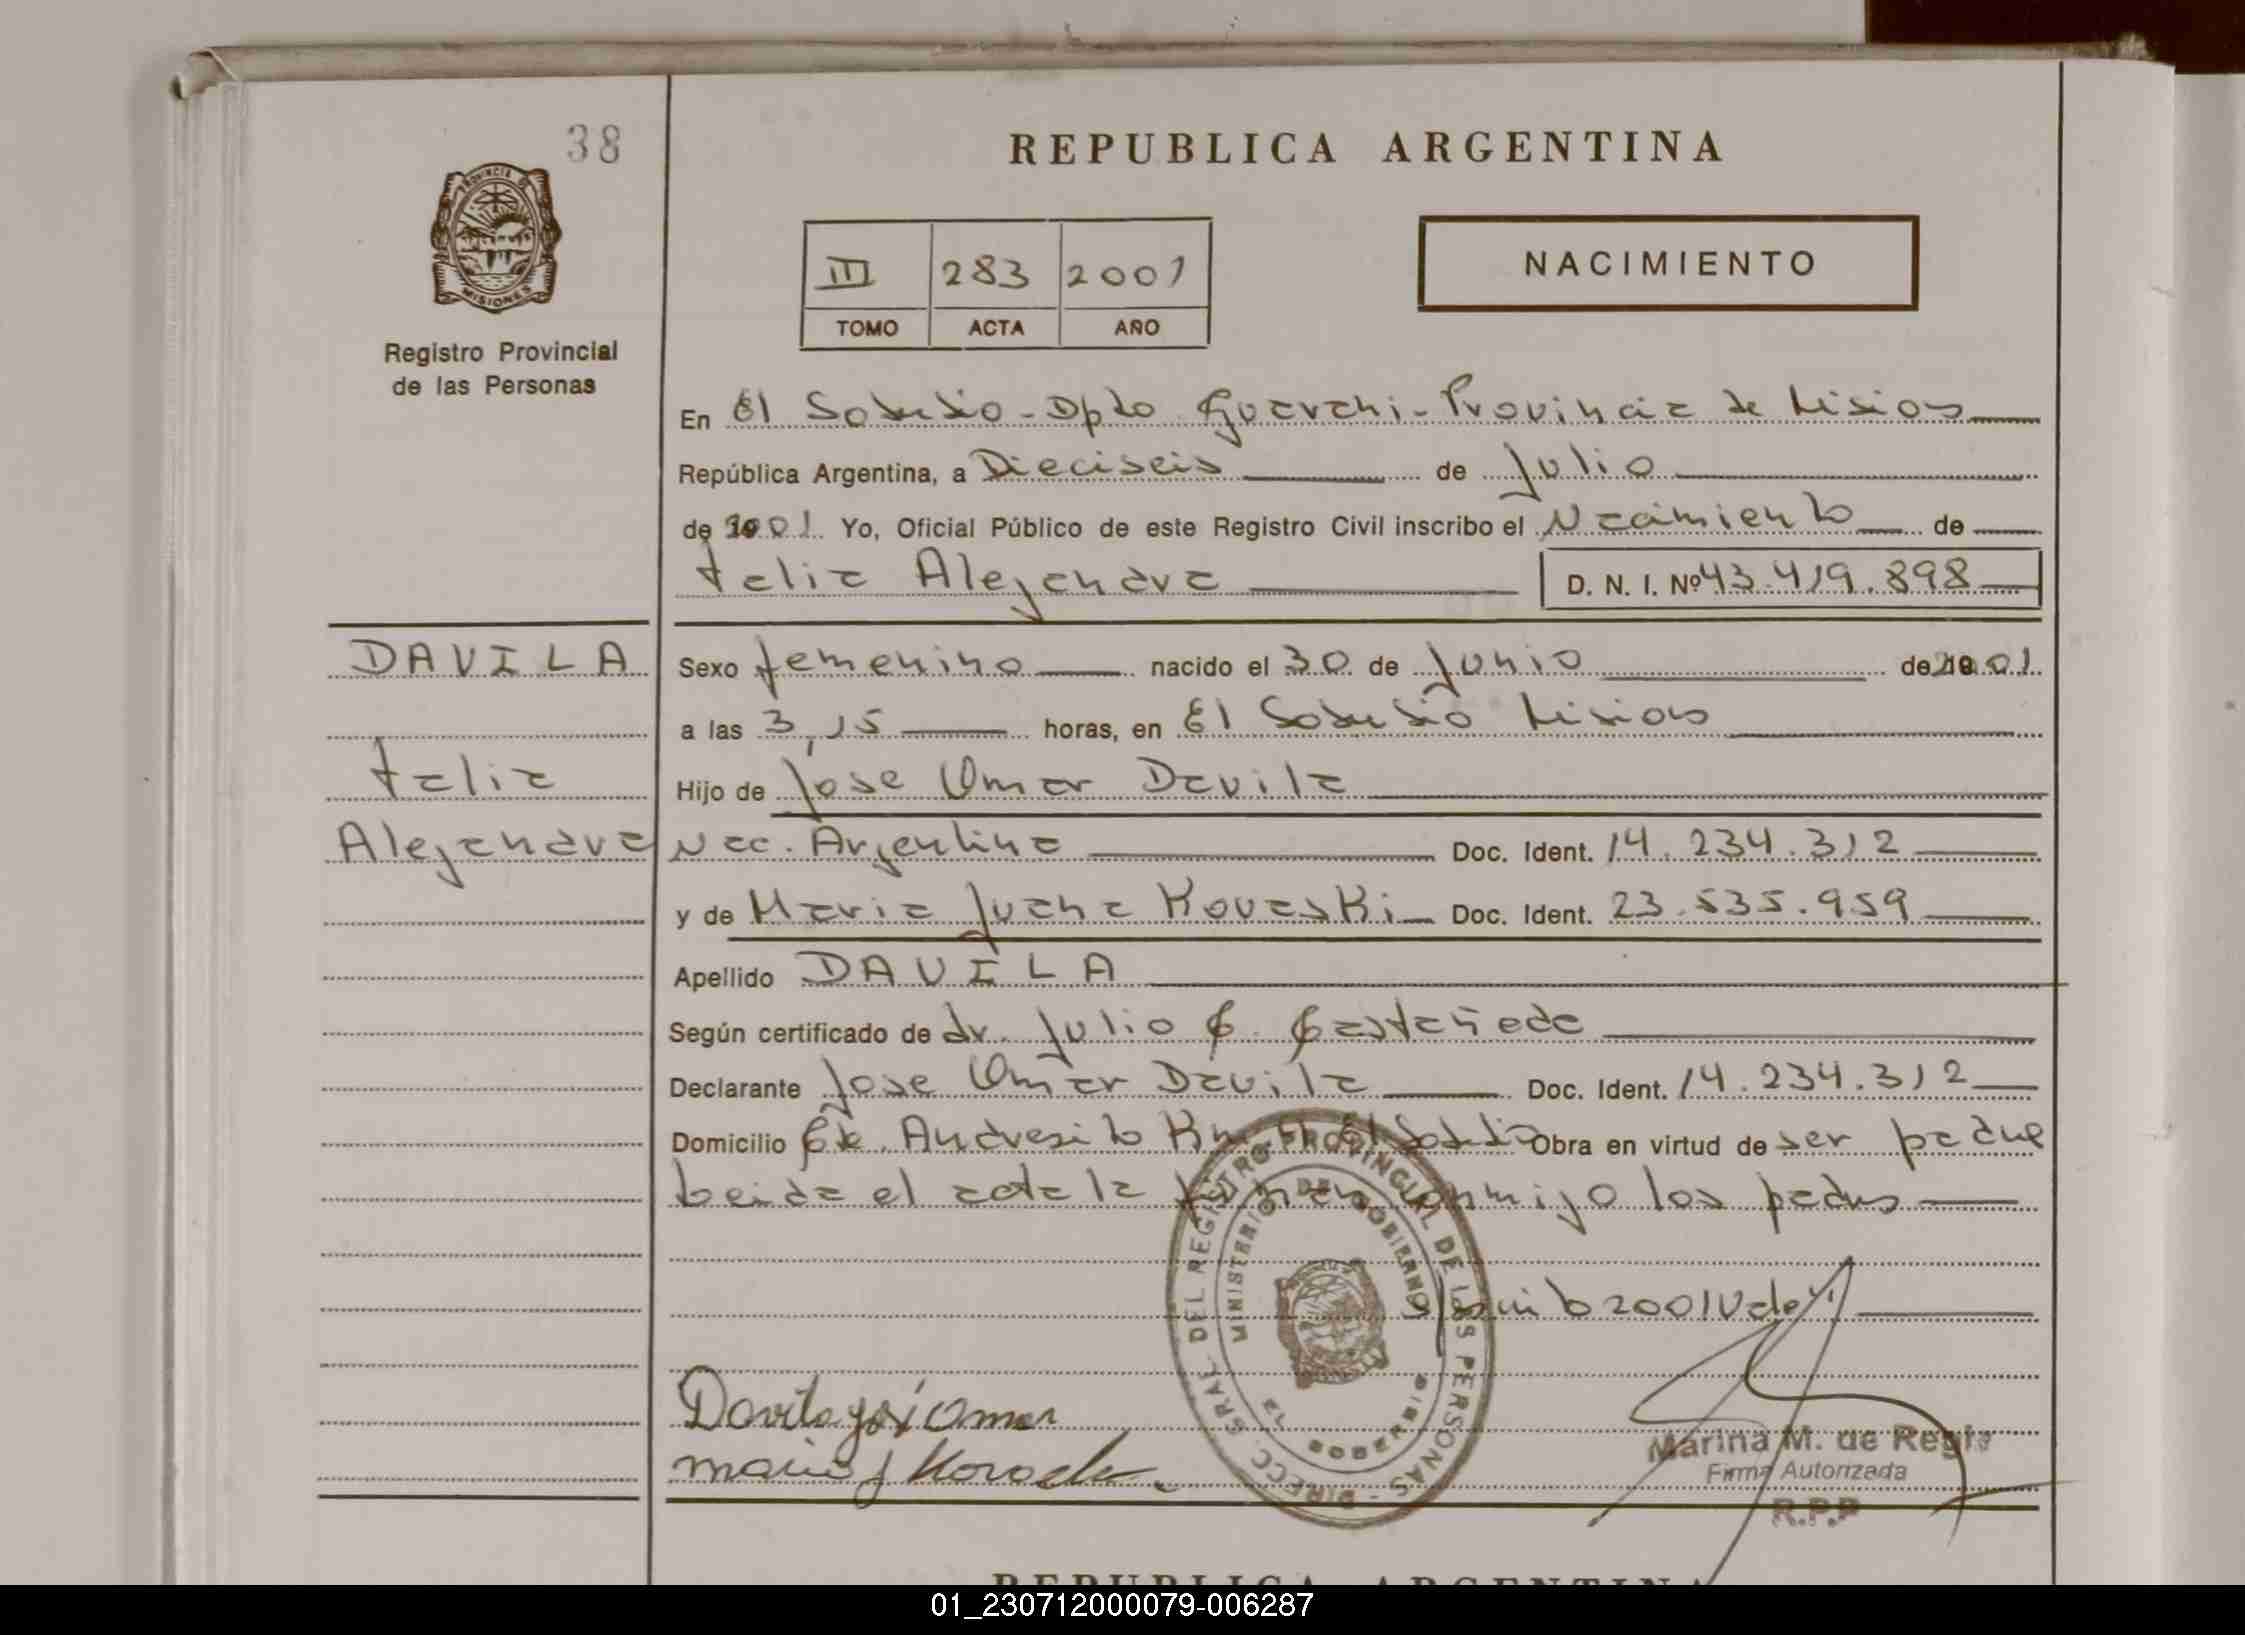 38
REPUBLICA ARGENTINA
PROVINCIA DE
MISIONES
III 283 2001
TOMO ACTA AÑO
NACIMIENTO
Registro Provincial
de las Personas
En El Soberbio - Dpto Guarani - Provincia de Misiones
República Argentina, a Dieciseis de Julio
de 2001 Yo, Oficial Público de este Registro Civil inscribo el Nacimiento de
Talia Alejandra D. N. I. Nº 43.419.898
DAVILA
Talia
Alejandra
Sexo femenino nacido el 30 de Junio de 2001
a las 3,15 horas, en El Soberbio Misiones
Hijo de Jose Omar Davila
Nac. Argentina Doc. Ident. 14.234.312
y de Maria Juana Kovaski Doc. Ident. 23.535.959
Apellido DAVILA
Según certificado de dr. Julio C. Castañeda
Declarante Jose Omar Davila Doc. Ident. 14.234.312
Domicilio Cte. Andresito El Soberbio Obra en virtud de ser padre
leida el acta la firman conmigo los padres
2001 Vale
Davila José Omar
Maria J
DIRECC. GRAL. DEL REGISTRO PROVINCIAL DE LAS PERSONAS
MINISTERIO DE GOBIERNO
Marina M. de Regis
Firma Autorizada
R.P.P
REPUBLICA ARGENTINA
01_230712000079-006287